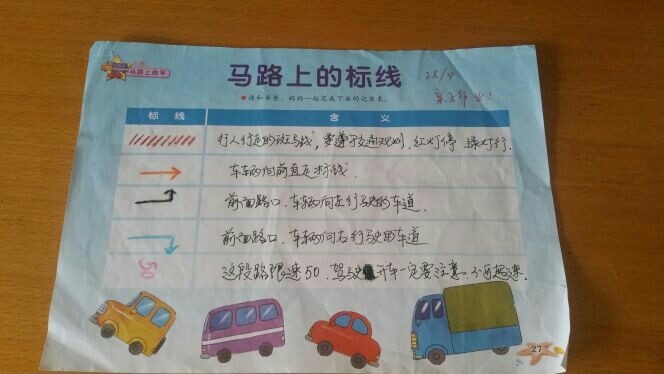 主题一
马路上的车
马路上的标线
28/4
亲子作业!
●请和爸爸、妈妈一起完成下面的记录表。
标 线 含 义
行人行走的斑马线,要遵守交通规则,红灯停 绿灯行.
车辆向前直走标线.
前面路口,车辆向左行驶的车道.
前面路口,车辆向右行驶的车道
50 这段路限速50.驾驶开车一定要注意.不可超速.
27